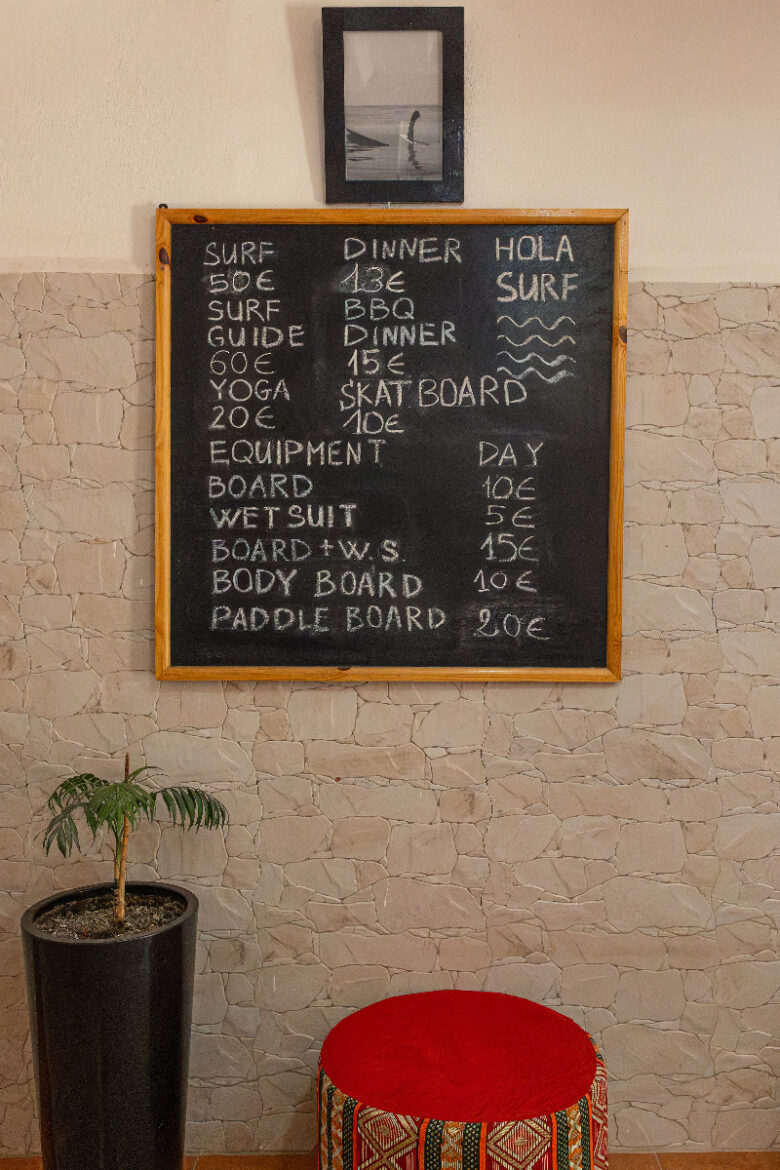 SURF
50€
SURF
GUIDE
60€
YOGA
20€
DINNER
13€
BBQ
DINNER
15€
SKATBOARD
10€
HOLA
SURF
EQUIPMENT DAY
BOARD 10€
WETSUIT 5€
BOARD + W.S. 15€
BODY BOARD 10€
PADDLE BOARD 20€